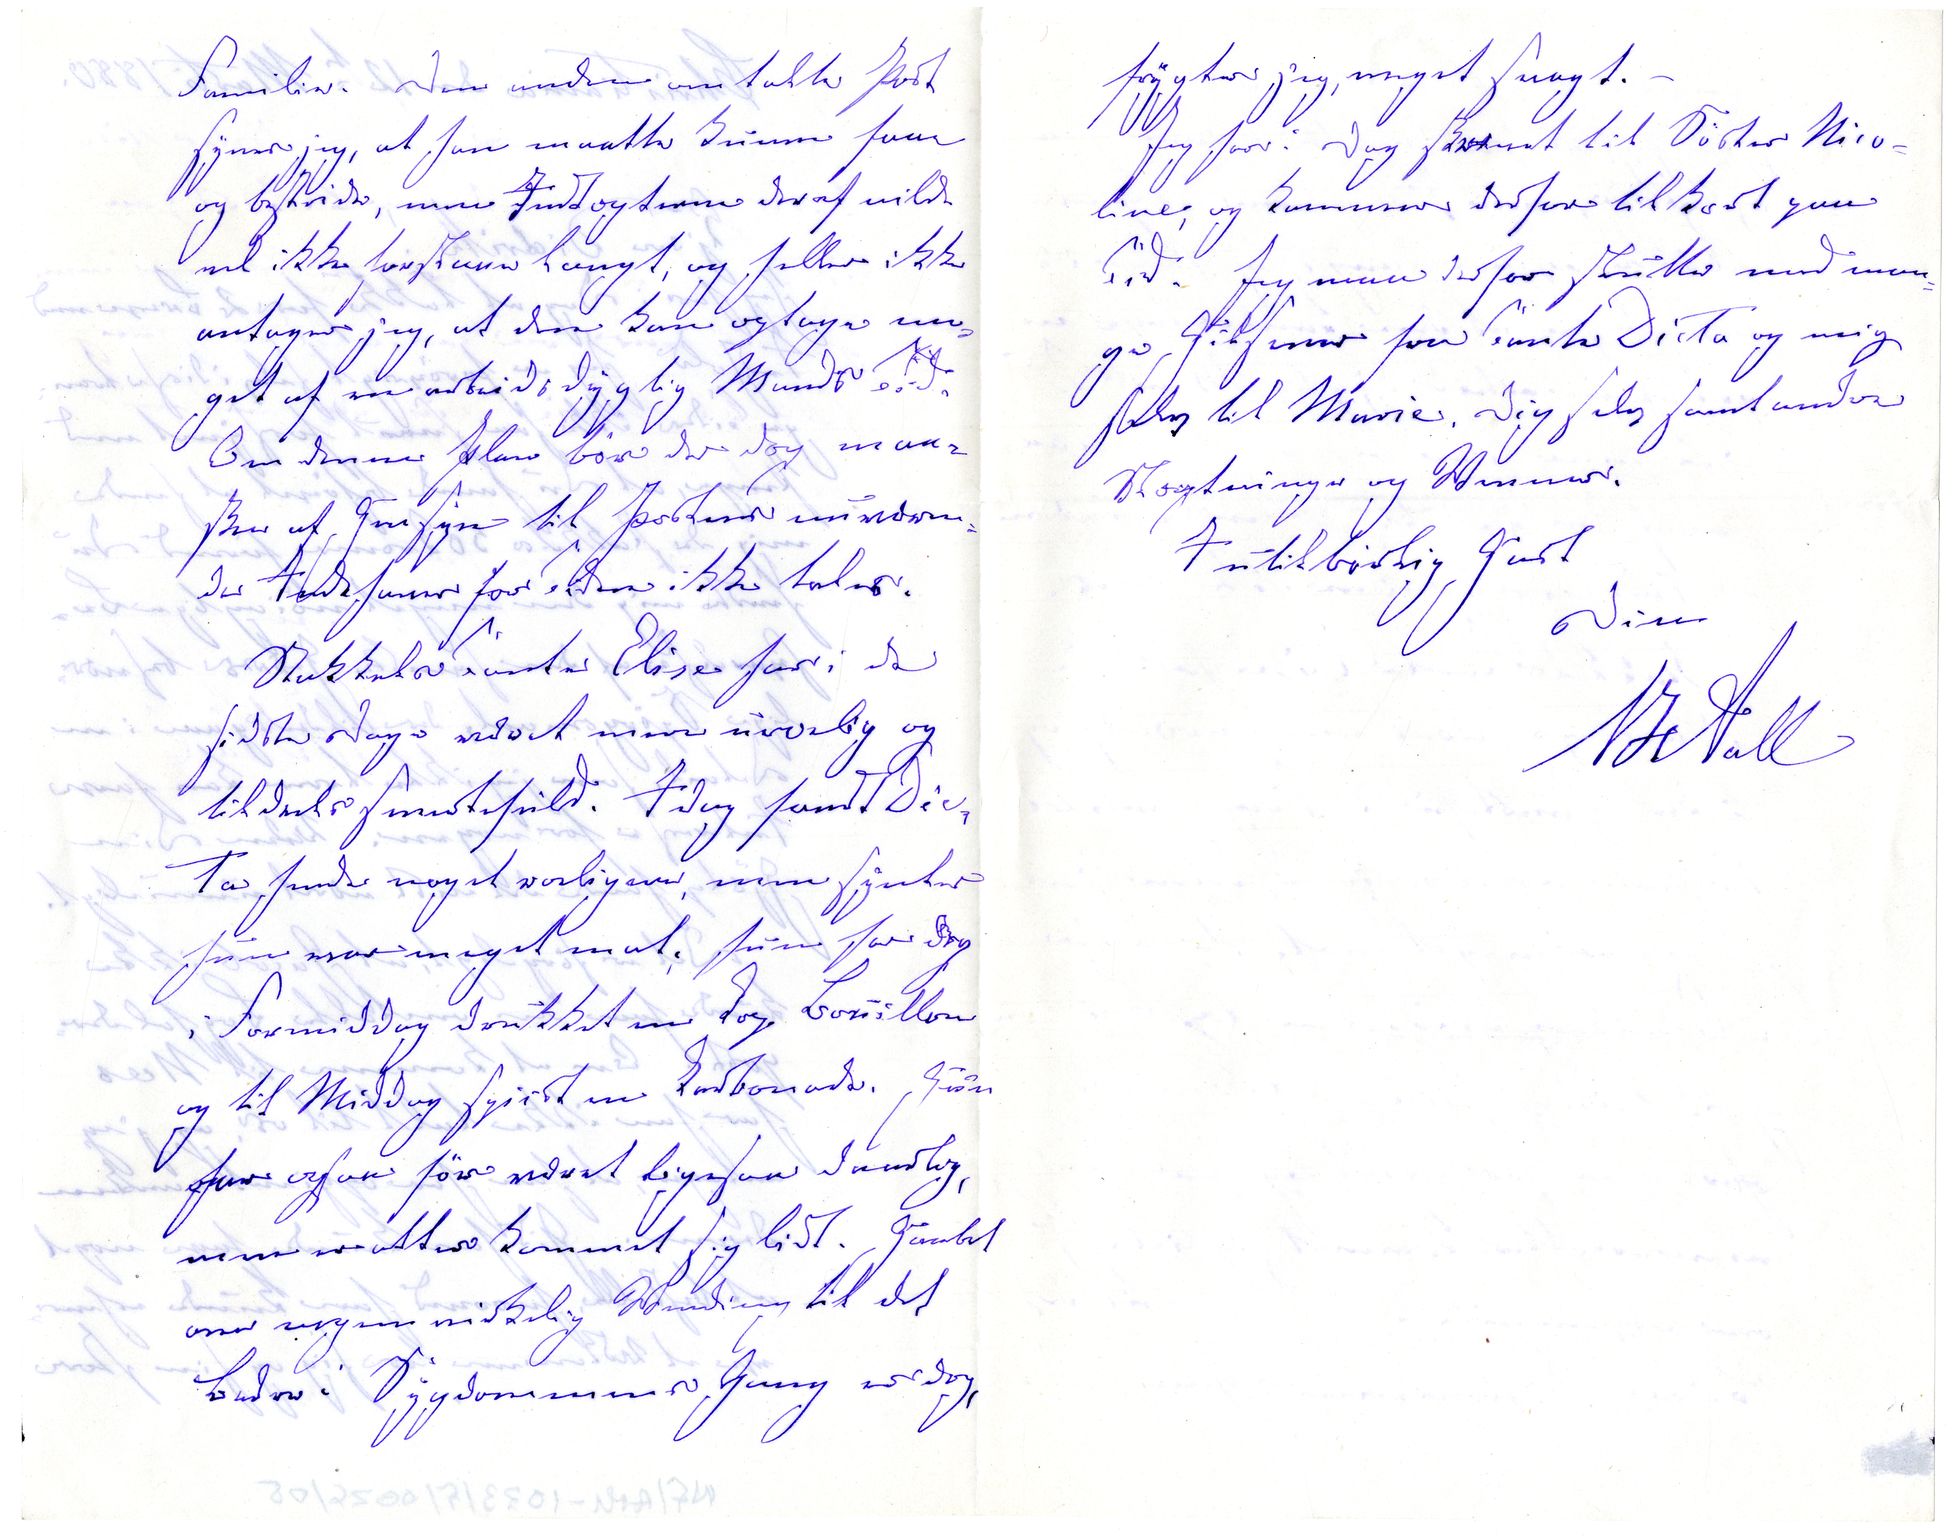 Familie. Den anden omtalte Post
synes jeg, at han maatte kunne faae
og bestride, men Indtægterne deraf vilde
vel ikke forslaae langt, og heller ikke
antager jeg, at den kan optage no-
get af en arbeidsdygtig Mands Tid.
Om denne Plan bör der dog maa-
skee af Hensyn til Postens nuværen-
de Indehaver for Tiden ikke tales.
Stakkels Tante Elise har i de
sidste Dage været mere urolig og
tildeels smertefuld. Idag fandt Dic-
ta hende noget roligere, men syntes
hun var meget mat; hun har dog
i Formiddag drukket en Kop Bouillon
og til Middag spiist en Karbonade. Hun
har ogsaa för været ligesaa daarlig,
men er atter kommet sig lidt. Haabet
om nogen virkelig Vending til det
bedre i Sygdommens Gang er dog,
frygter jeg, meget svagt. –
Jeg har i Dag skrevet til Söster Nico-
line, og kommer derfor til kort paa
Tid. Jeg maa derfor slutte med man-
ge Hilsener fra Tante Dicta og mig
selv til Marie, Dig selv samt andre
Slægtninge og Venner.
I utilbörlig Hast
Din